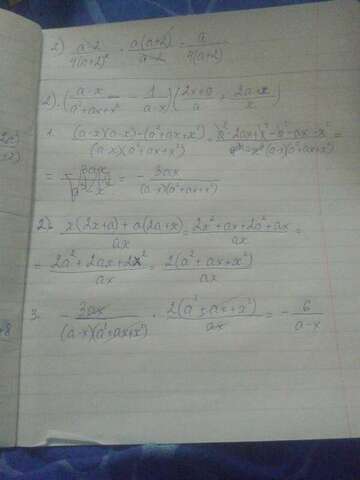 2) (a-2)/(4(a+2)²) · (a(a+2))/(a-2) = a/(4(a+2))
2). ((a-x)/(a²+ax+x²) - 1/(a-x)) (2x+a)/a + (2a+x)/x)
1. ((a-x)(a-x)-(a²+ax+x²))/((a-x)(a²+ax+x²)) = (a²-2ax+x²-a²-ax-x²)/((a-x)(a²+ax+x²)) =
= - 3ax/(a³-x³) = - 3ax/((a-x)(a²+ax+x²))
2). (x(2x+a)+a(2a+x))/ax = (2x²+ax+2a²+ax)/ax =
= (2a²+2ax+2x²)/ax = 2(a²+ax+x²)/ax
3. - 3ax/((a-x)(a²+ax+x²)) · 2(a²+ax+x²)/ax = - 6/(a-x)